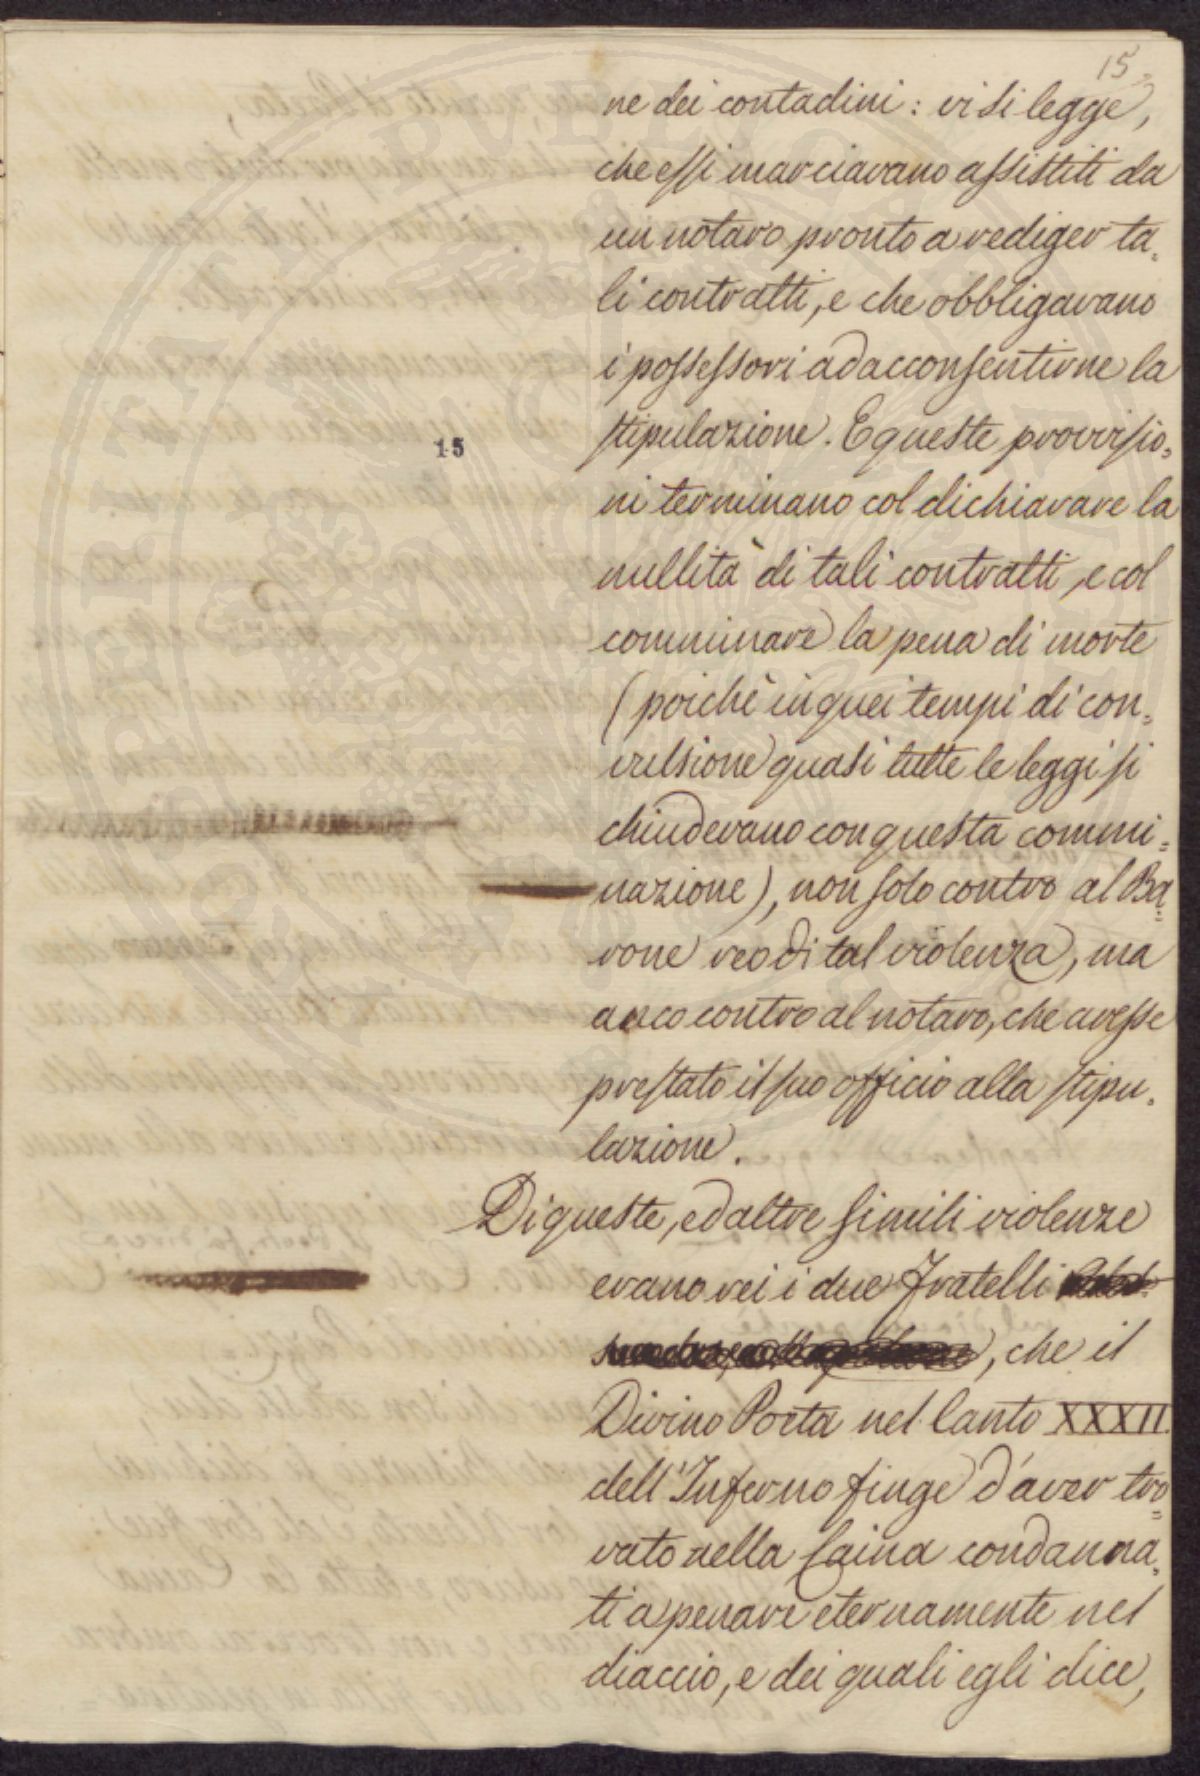 15.
ne dei contadini: vi si legge,
che essi marciavano assistiti da
un notaro pronto a rediger ta=
li contratti, e che obbligavano
i possessori ad acconsentirne la
stipulazione. E queste provvisio=
15
ni terminano col dichiarare la
nullità di tali contratti, e col
comminare la pena di morte
(poichè in quei tempi di con=
vulsione quasi tutte le leggi si
chiudevano con questa commi=
nazione), non solo contro al Ba=
rone reo di tal violenza, ma
anco contro al notaro, che avesse
prestato il suo officio alla stipu=
lazione.
Di queste, ed altre simili violenze
erano rei i due Fratelli
, che il
Divino Poeta nel Canto XXXII.
dell'Inferno finge d'aver tro=
vato nella Caina condanna=
ti a penare eternamente nel
diaccio, e dei quali egli dice,